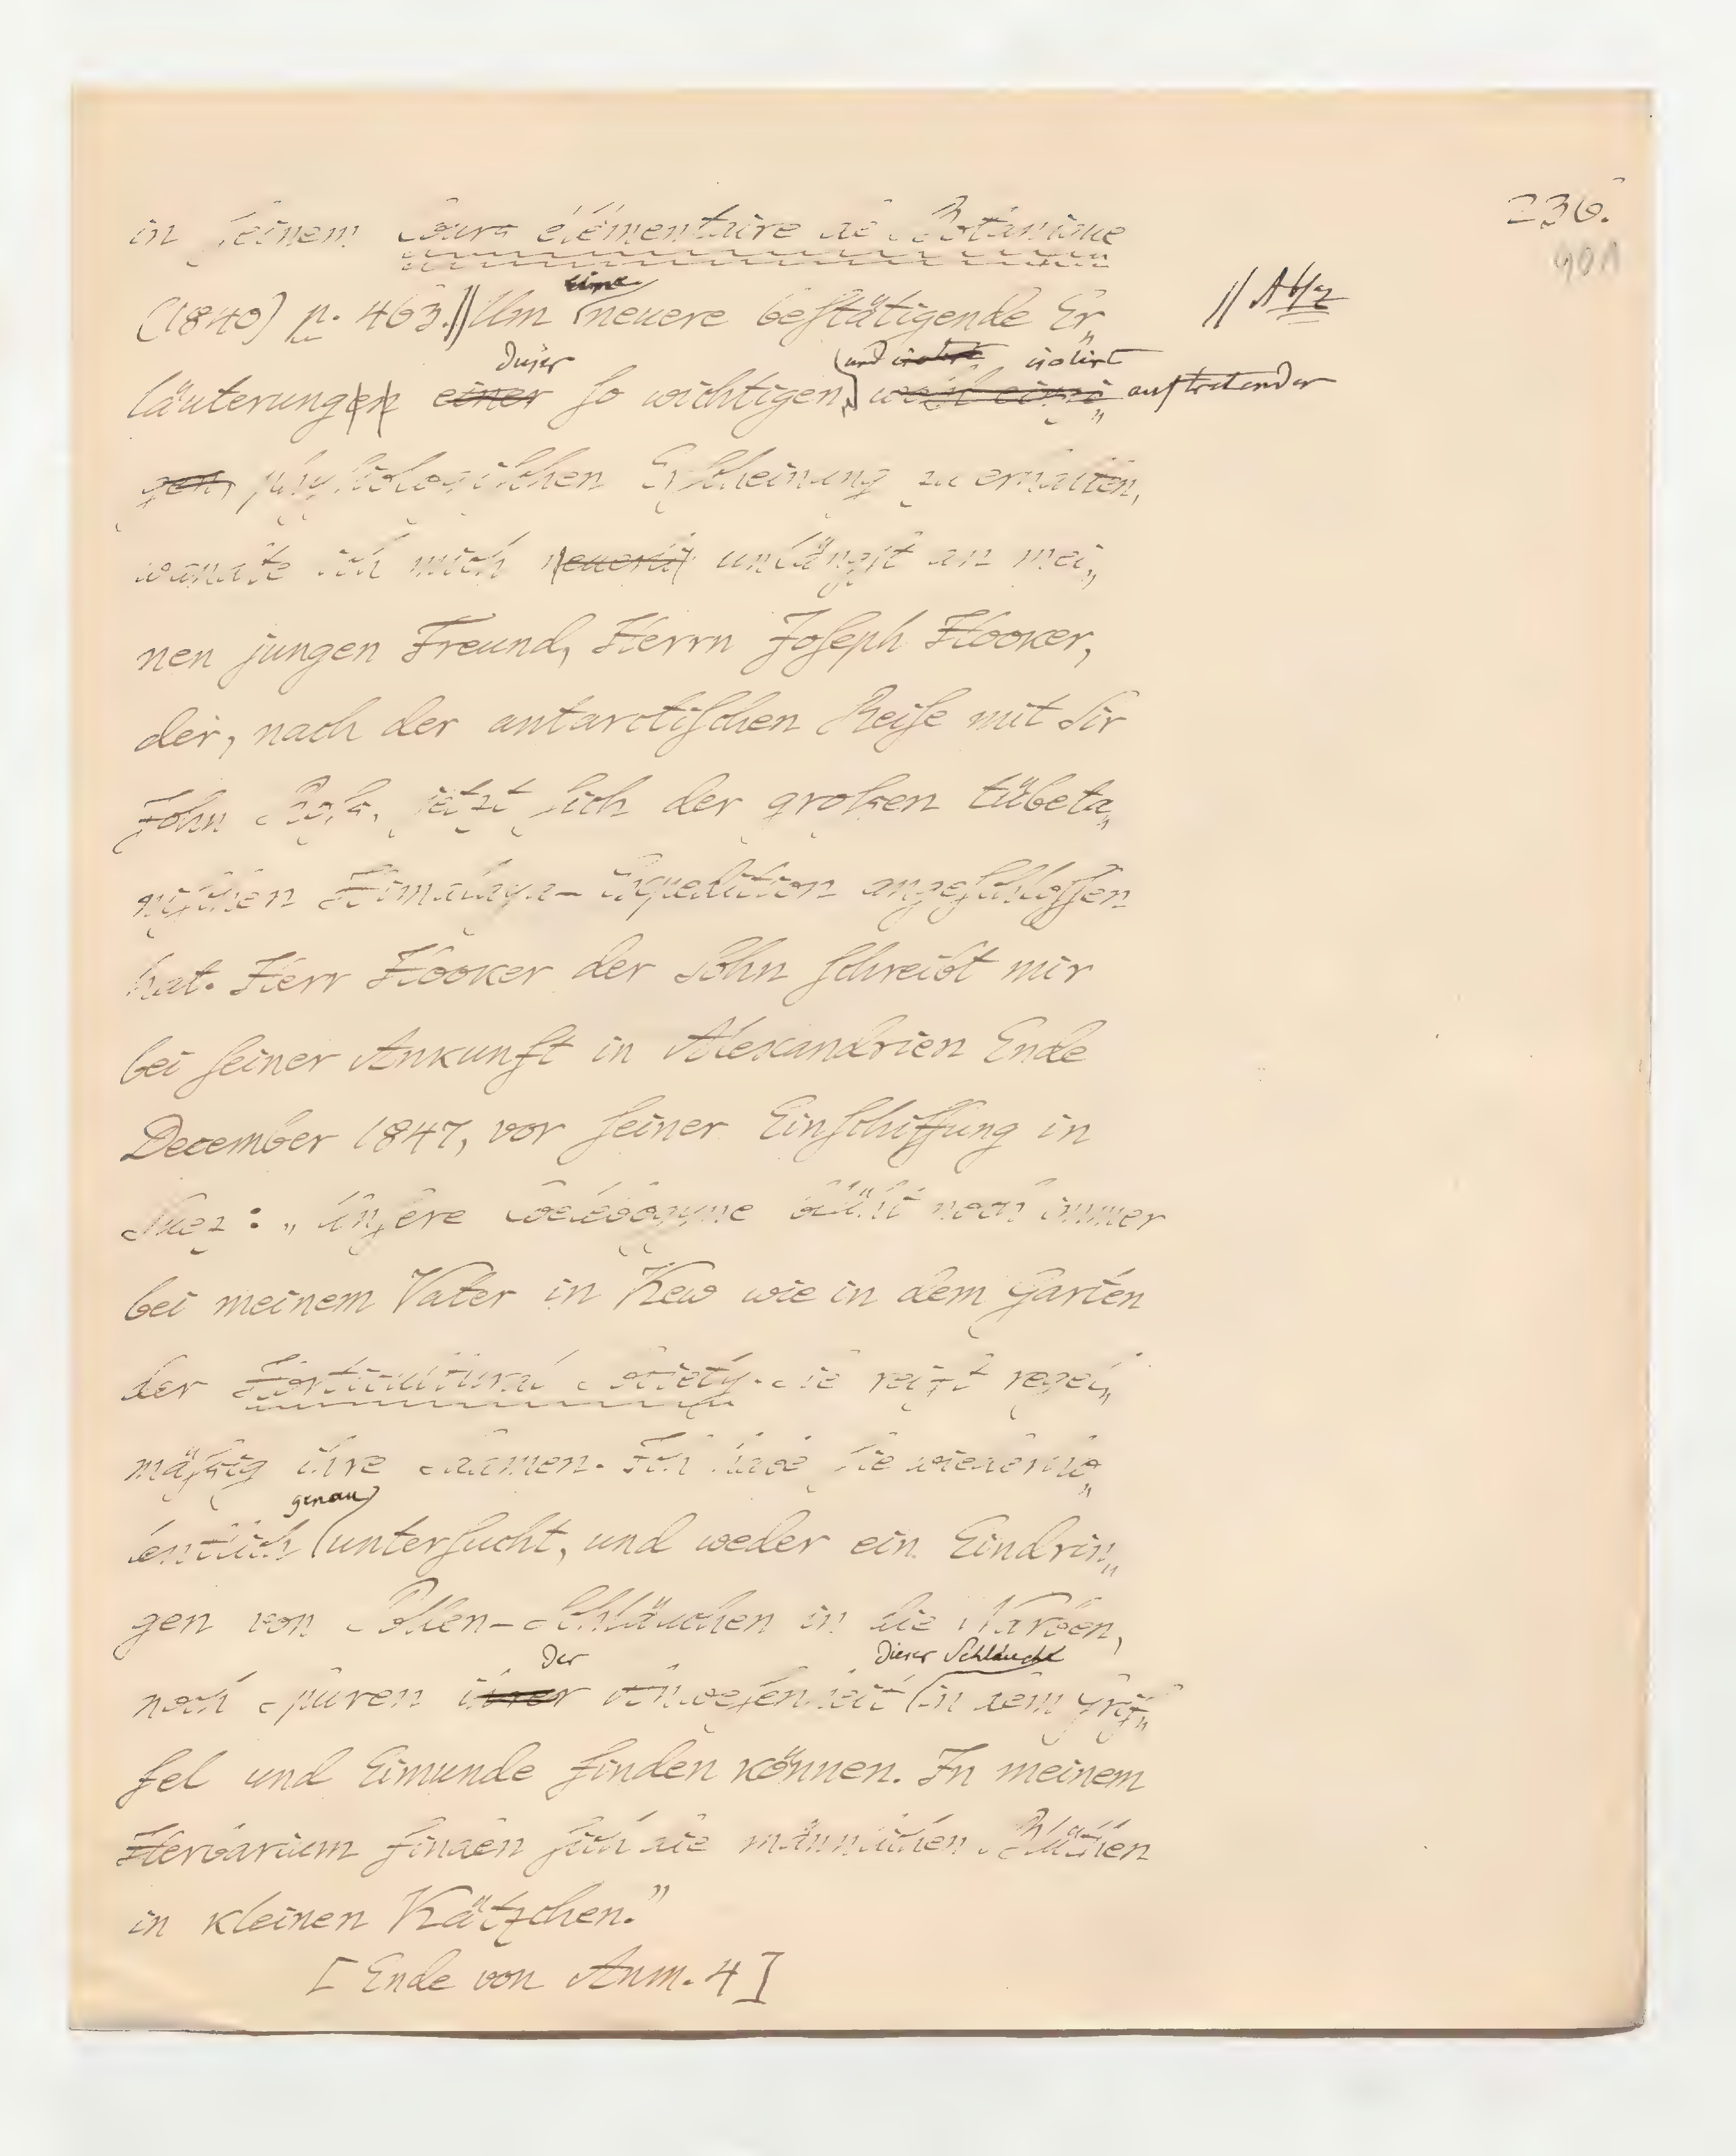 236.
901
in seinem Cours élémentaire de Botanique
(1840) p. 463.// Um eine neuere bestätigende Er„ // Abz
läuterungen einer dieser so wichtigen, und isolirt auftretender
gen physiologischen Erscheinung zu erhalten,
wandte ich mich unlängst an mei„
nen jungen Freund, Herrn Joseph Hooker,
der, nach der antarctischen Reise mit Sir
John Ross, jetzt sich der großen tübeta„
nischen Himalaya-Expedition angeschlossen
hat. Herr Hooker der Sohn schreibt mir
bei seiner Ankunft in Alexandrien Ende
December 1847, vor seiner Einschiffung in
Suez: „Unsere Coelebogyne blüht noch immer
bei meinem Vater in Kew wie in dem Garten
der Horticultural Society. Sie reift regel„
mäßig ihre Saamen. Ich habe sie wiederho„
lentlich genau untersucht, und weder ein Eindrin„
gen von Pollen-Schläuchen in die Narben,
noch Spuren ihrer der Anwesenheit dieser Schläuche in dem Grif„
fel und Eimunde finden können. In meinem
Herbarium finden sich die männlichen Blüthen
in kleinen Kätzchen."
[Ende von Anm. 4]